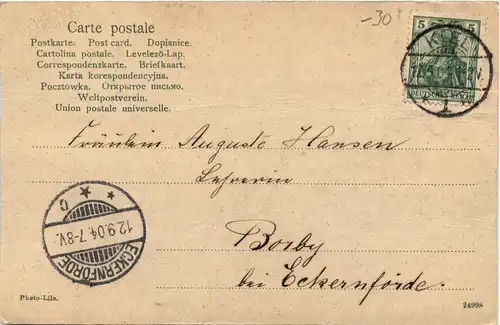 -30
Carte postale
Postkarte. Post card. Dopisnice.
Cartolina postale. Levelező-Lap.
Correspondenzkarte. Briefkaart.
Karta korespondencyjna.
Pocztówka. Открытое письмо.
Weltpostverein.
Union postale universelle.
5 5
KIEL
1
Fräulein Auguste Hansen
Lehrerin
Borby
bei Eckernförde.
C
12.9.04.7-8V.
ECKERNFÖRDE
Photo-Lila.
24998